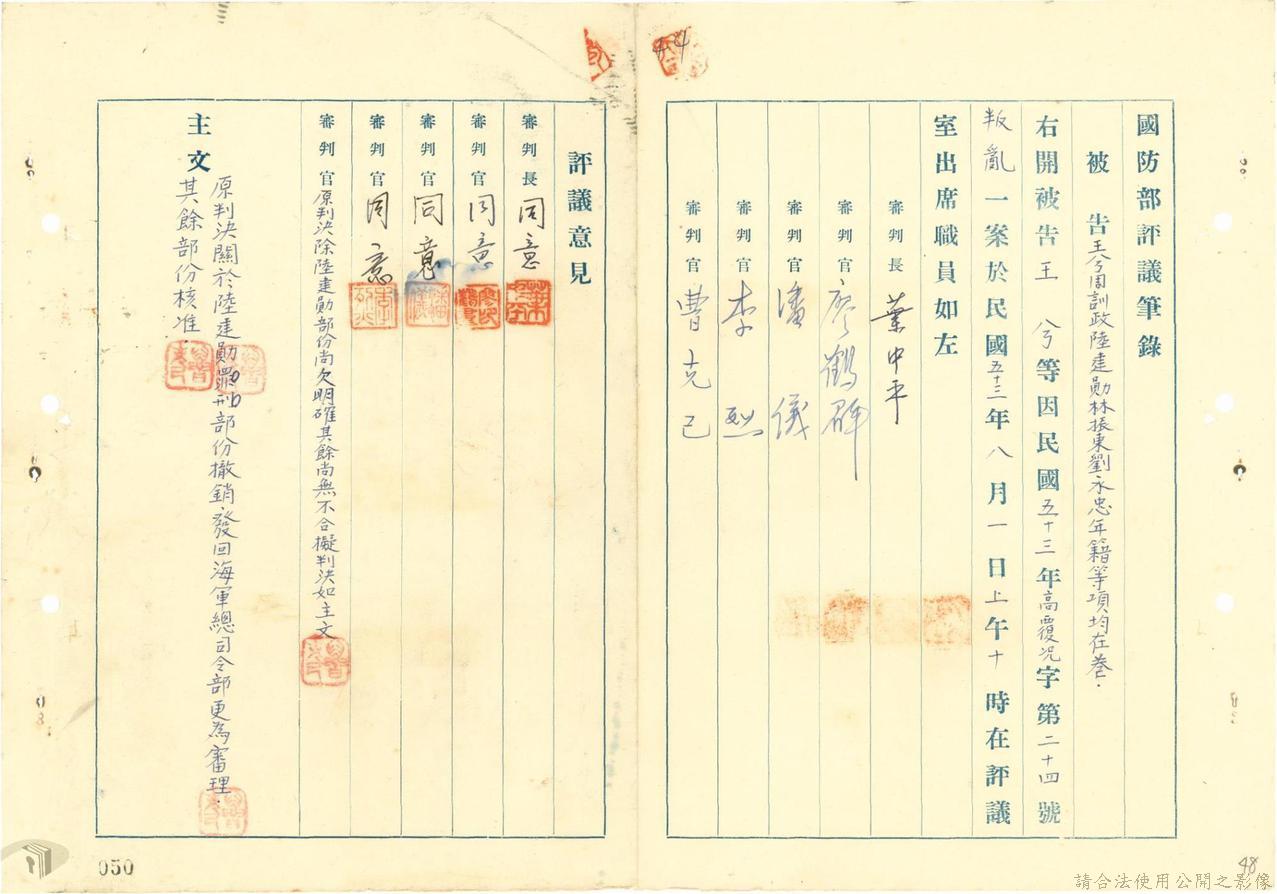 44
國防部評議筆錄
被告王兮周訓政陸建勛林振東劉永忠年籍等項均在卷.
右開被告王兮等因民國五十三年高覆况字第二十四號
叛亂一案於民國五十三年八月一日上午十時在評議
室出席職員如左
審判長 葉中平
審判官 廖鶴群
審判官 潘儀
審判官 李烈
審判官 曹克己
評議意見
審判長同意
審判官同意
審判官同意
審判官同意
審判官原判決除陸建勛部份尚欠明確其餘尚無不合擬判決如主文
主文
原判決關於陸建勛罪刑部份撤銷.發回海軍總司令部更為審理.
其餘部份核准.
050
48
請合法使用公開之影像